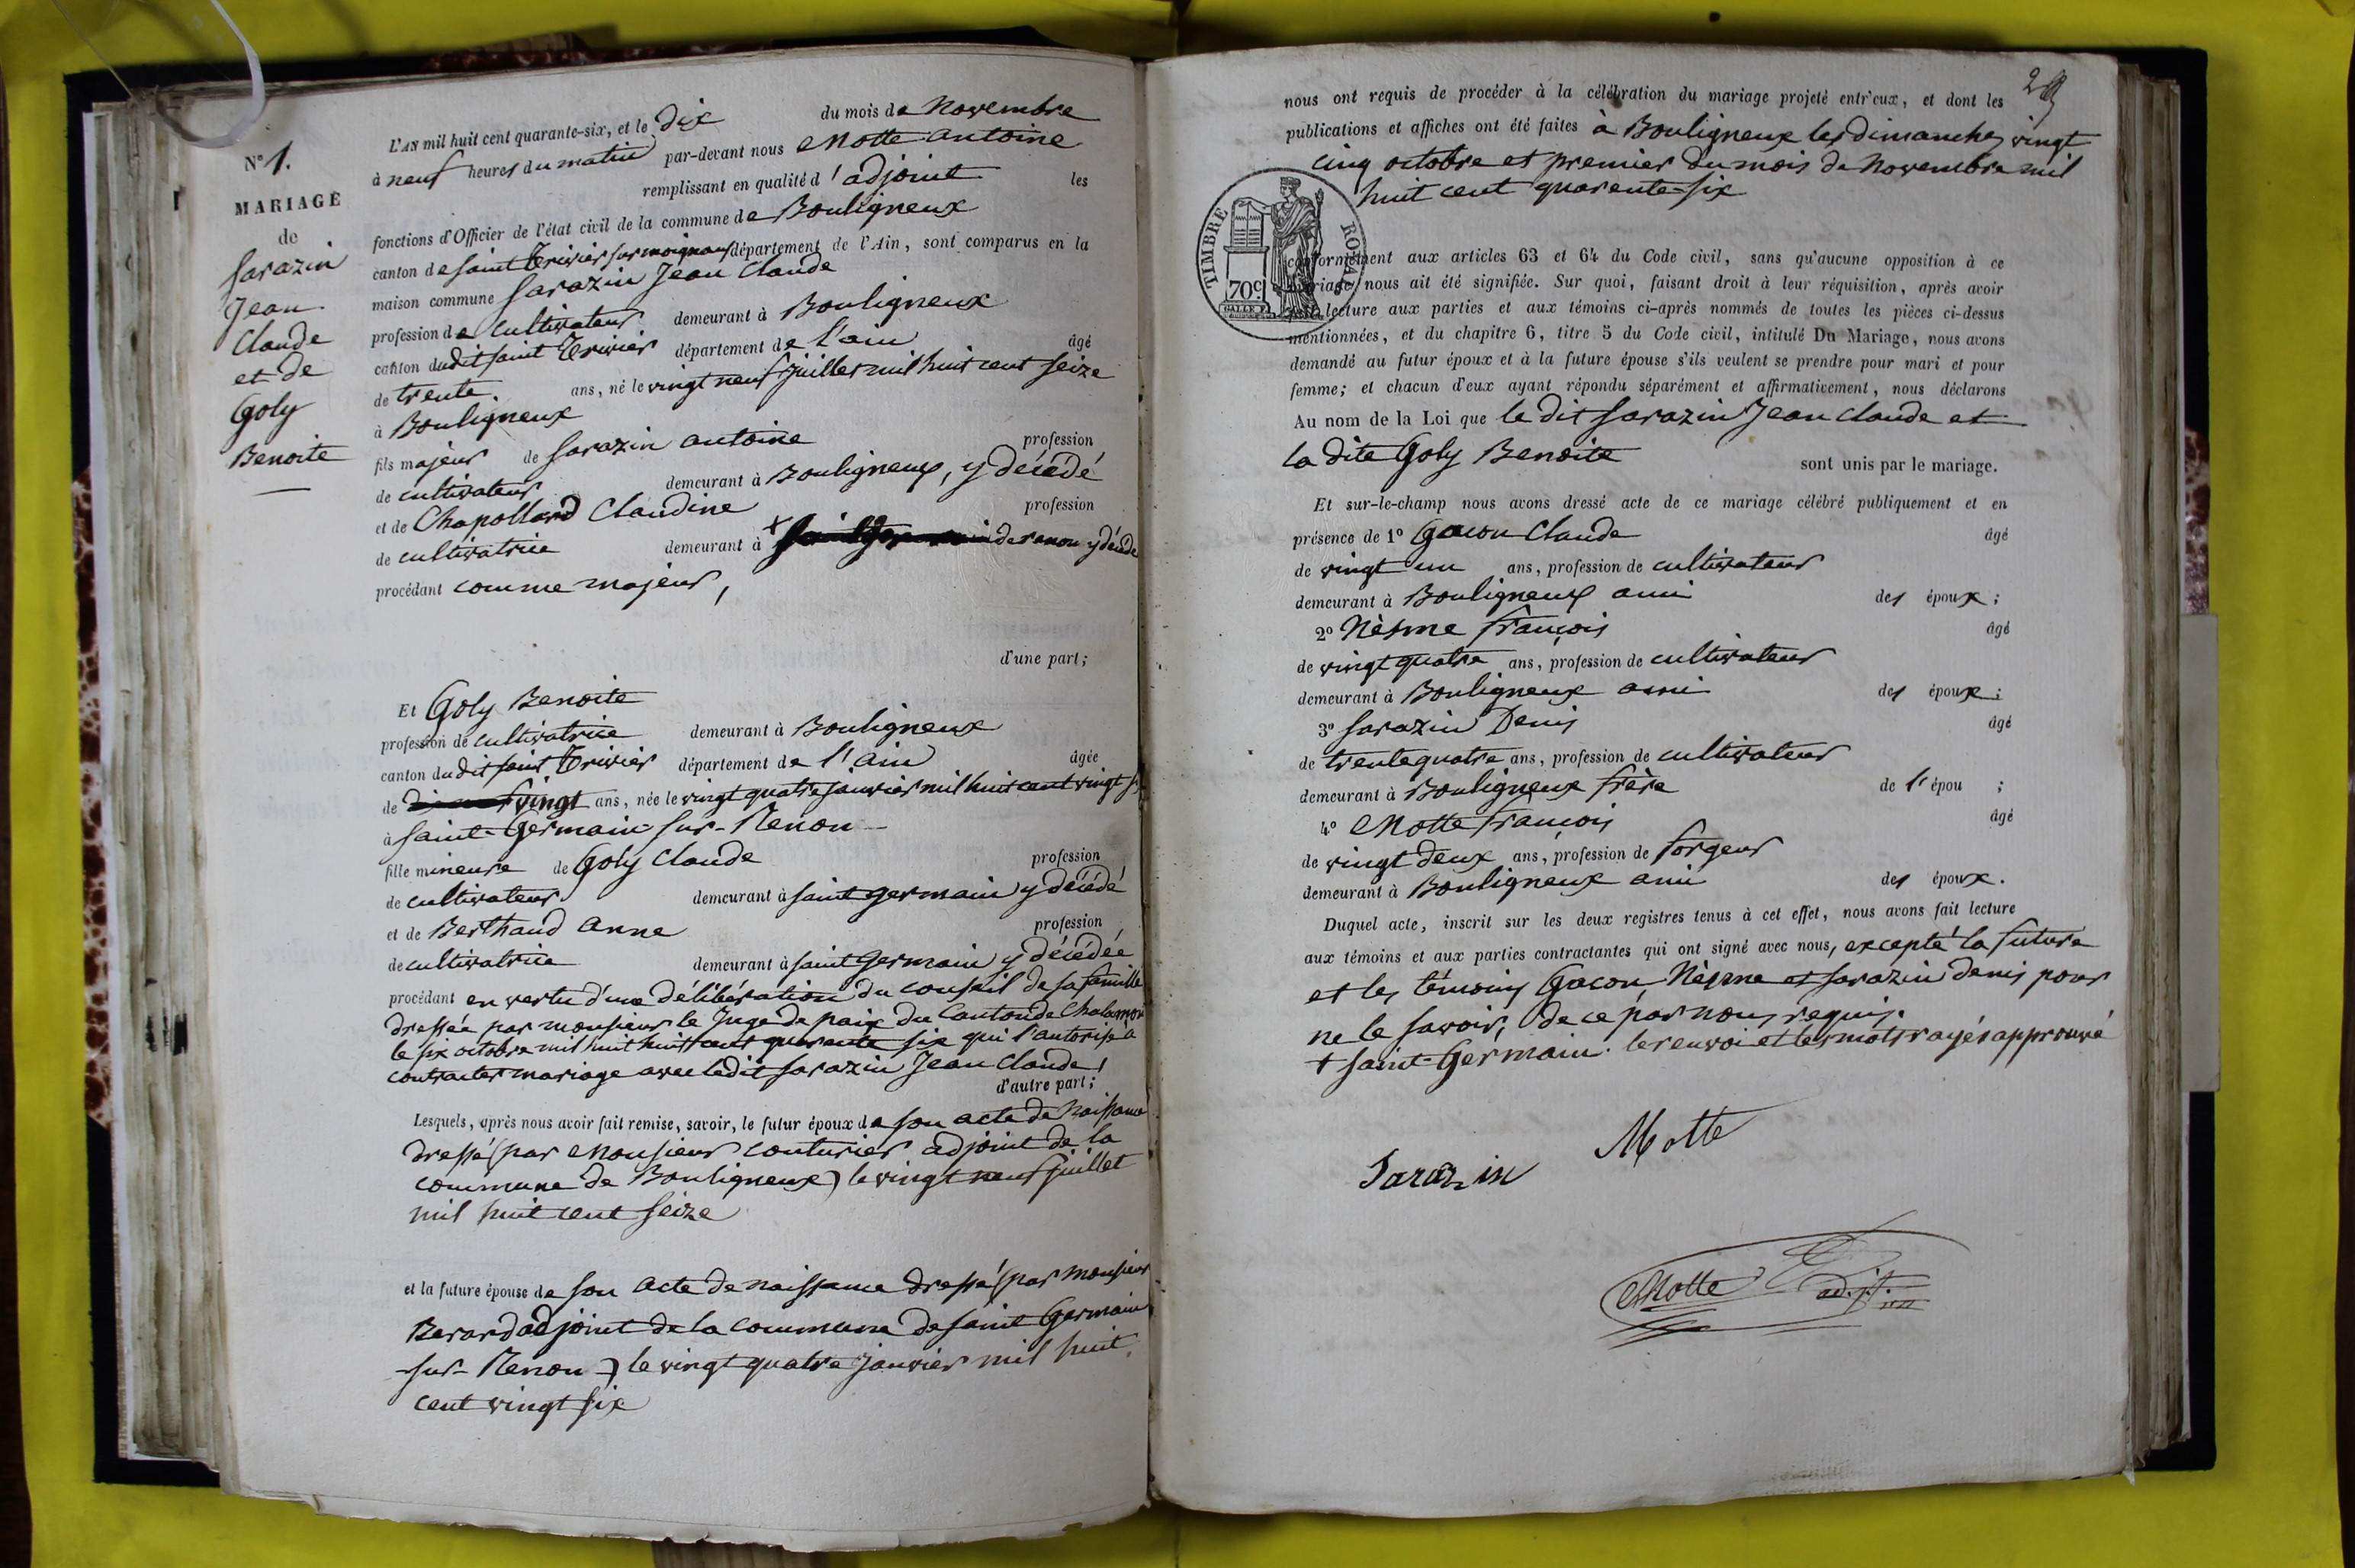 N° 1.
MARIAGE
de
Sarazin
Jean
Claude
et de
Goly
Benoite
L'AN mil huit cent quarante-six, et le dix du mois de Novembre
à neuf heures du matin par-devant nous Motte Antoine
remplissant en qualité d'adjoint les
fonctions d'Officier de l'état civil de la commune de Bouligneux
canton de saint Trivier sur moignans département de l'Ain, sont comparus en la
maison commune Sarazin Jean Claude
profession de cultivateur demeurant à Bouligneux
canton du dit saint Trivier département de l'ain âgé
de trente. ans, né le vingt neuf juillet mil huit cent seize
à Bouligneux
fils majeur de Sarazin antoine profession
de cultivateur demeurant à Bouligneux, y décédé
et de Chapolland Claudine profession
de cultivatrice demeurant à + de renon y décédé
procédant comme majeur,
d'une part;
Et Goly Benoite
profession de cultivatrice demeurant à Bouligneux
canton du dit saint Trivier département de l'Ain âgée
de vingt ans, née le vingt quatre janvier mil huit cent vingt six
à saint-Germain-sur-Renon
fille mineure de Goly Claude profession
de cultivateur demeurant à saint germain y décédé
et de Berthaud Anne profession
de cultivatrice demeurant à saint Germain y décédée
procédant en vertu d'une délibération du conseil de sa famille
dressée par monsieur le Juge de paix du Canton de Chalamon
le six octobre mil huit huit cent quarante six qui l'autorise à
contracter mariage avec ledit Sarazin Jean Claude,
d'autre part;
Lesquels, après nous avoir fait remise, savoir, le futur époux de son acte de Naissance
dressé (par Monsieur Couturier adjoint de la
commune de Bouligneux) le vingt neuf juillet
mil huit cent seize
et la future épouse de son acte de naissance dressé (par Monsieur
Berard adjoint de la commune de saint Germain
-sur-Renon) le vingt quatre janvier mil huit
cent vingt six
nous ont requis de procéder à la célébration du mariage projeté entr'eux, et dont les
publications et affiches ont été faites à Bouligneux les dimanches vingt
cinq octobre et premier du mois de Novembre mil
huit cent quarente-six
TIMBRE ROYAL
70c
conformément aux articles 63 et 64 du Code civil, sans qu'aucune opposition à ce
mariage nous ait été signifiée. Sur quoi, faisant droit à leur réquisition, après avoir
fait lecture aux parties et aux témoins ci-après nommés de toutes les pièces ci-dessus
mentionnées, et du chapitre 6, titre 5 du Code civil, intitulé Du Mariage, nous avons
demandé au futur époux et à la future épouse s'ils veulent se prendre pour mari et pour
femme; et chacun d'eux ayant répondu séparément et affirmativement, nous déclarons
Au nom de la Loi que le dit Sarazin Jean Claude et
la dite Goly Benoite sont unis par le mariage.
Et sur-le-champ nous avons dressé acte de ce mariage célébré publiquement et en
présence de 1° Gacon Claude âgé
de vingt un ans, profession de cultivateur
demeurant à Bouligneux ami des époux;
2° Nesme françois âgé
de vingt quatre ans, profession de cultivateur
demeurant à Bouligneux ami des époux;
3° Sarazin Denis âgé
de trente quatre ans, profession de cultivateur
demeurant à Bouligneux frère de l'épou ;
4° Motte françois âgé
de vingt deux ans, profession de forgeur
demeurant à Bouligneux ami des époux.
Duquel acte, inscrit sur les deux registres tenus à cet effet, nous avons fait lecture
aux témoins et aux parties contractantes qui ont signé avec nous, excepté la future
et les témoins Gacon, Nesme et Sarazin denis pour
ne le savoir, de ce par nous requis.
+ saint-Germain. le renvoi et les mots rayés approuvé
Motte
Sarazin
Motte adjt.